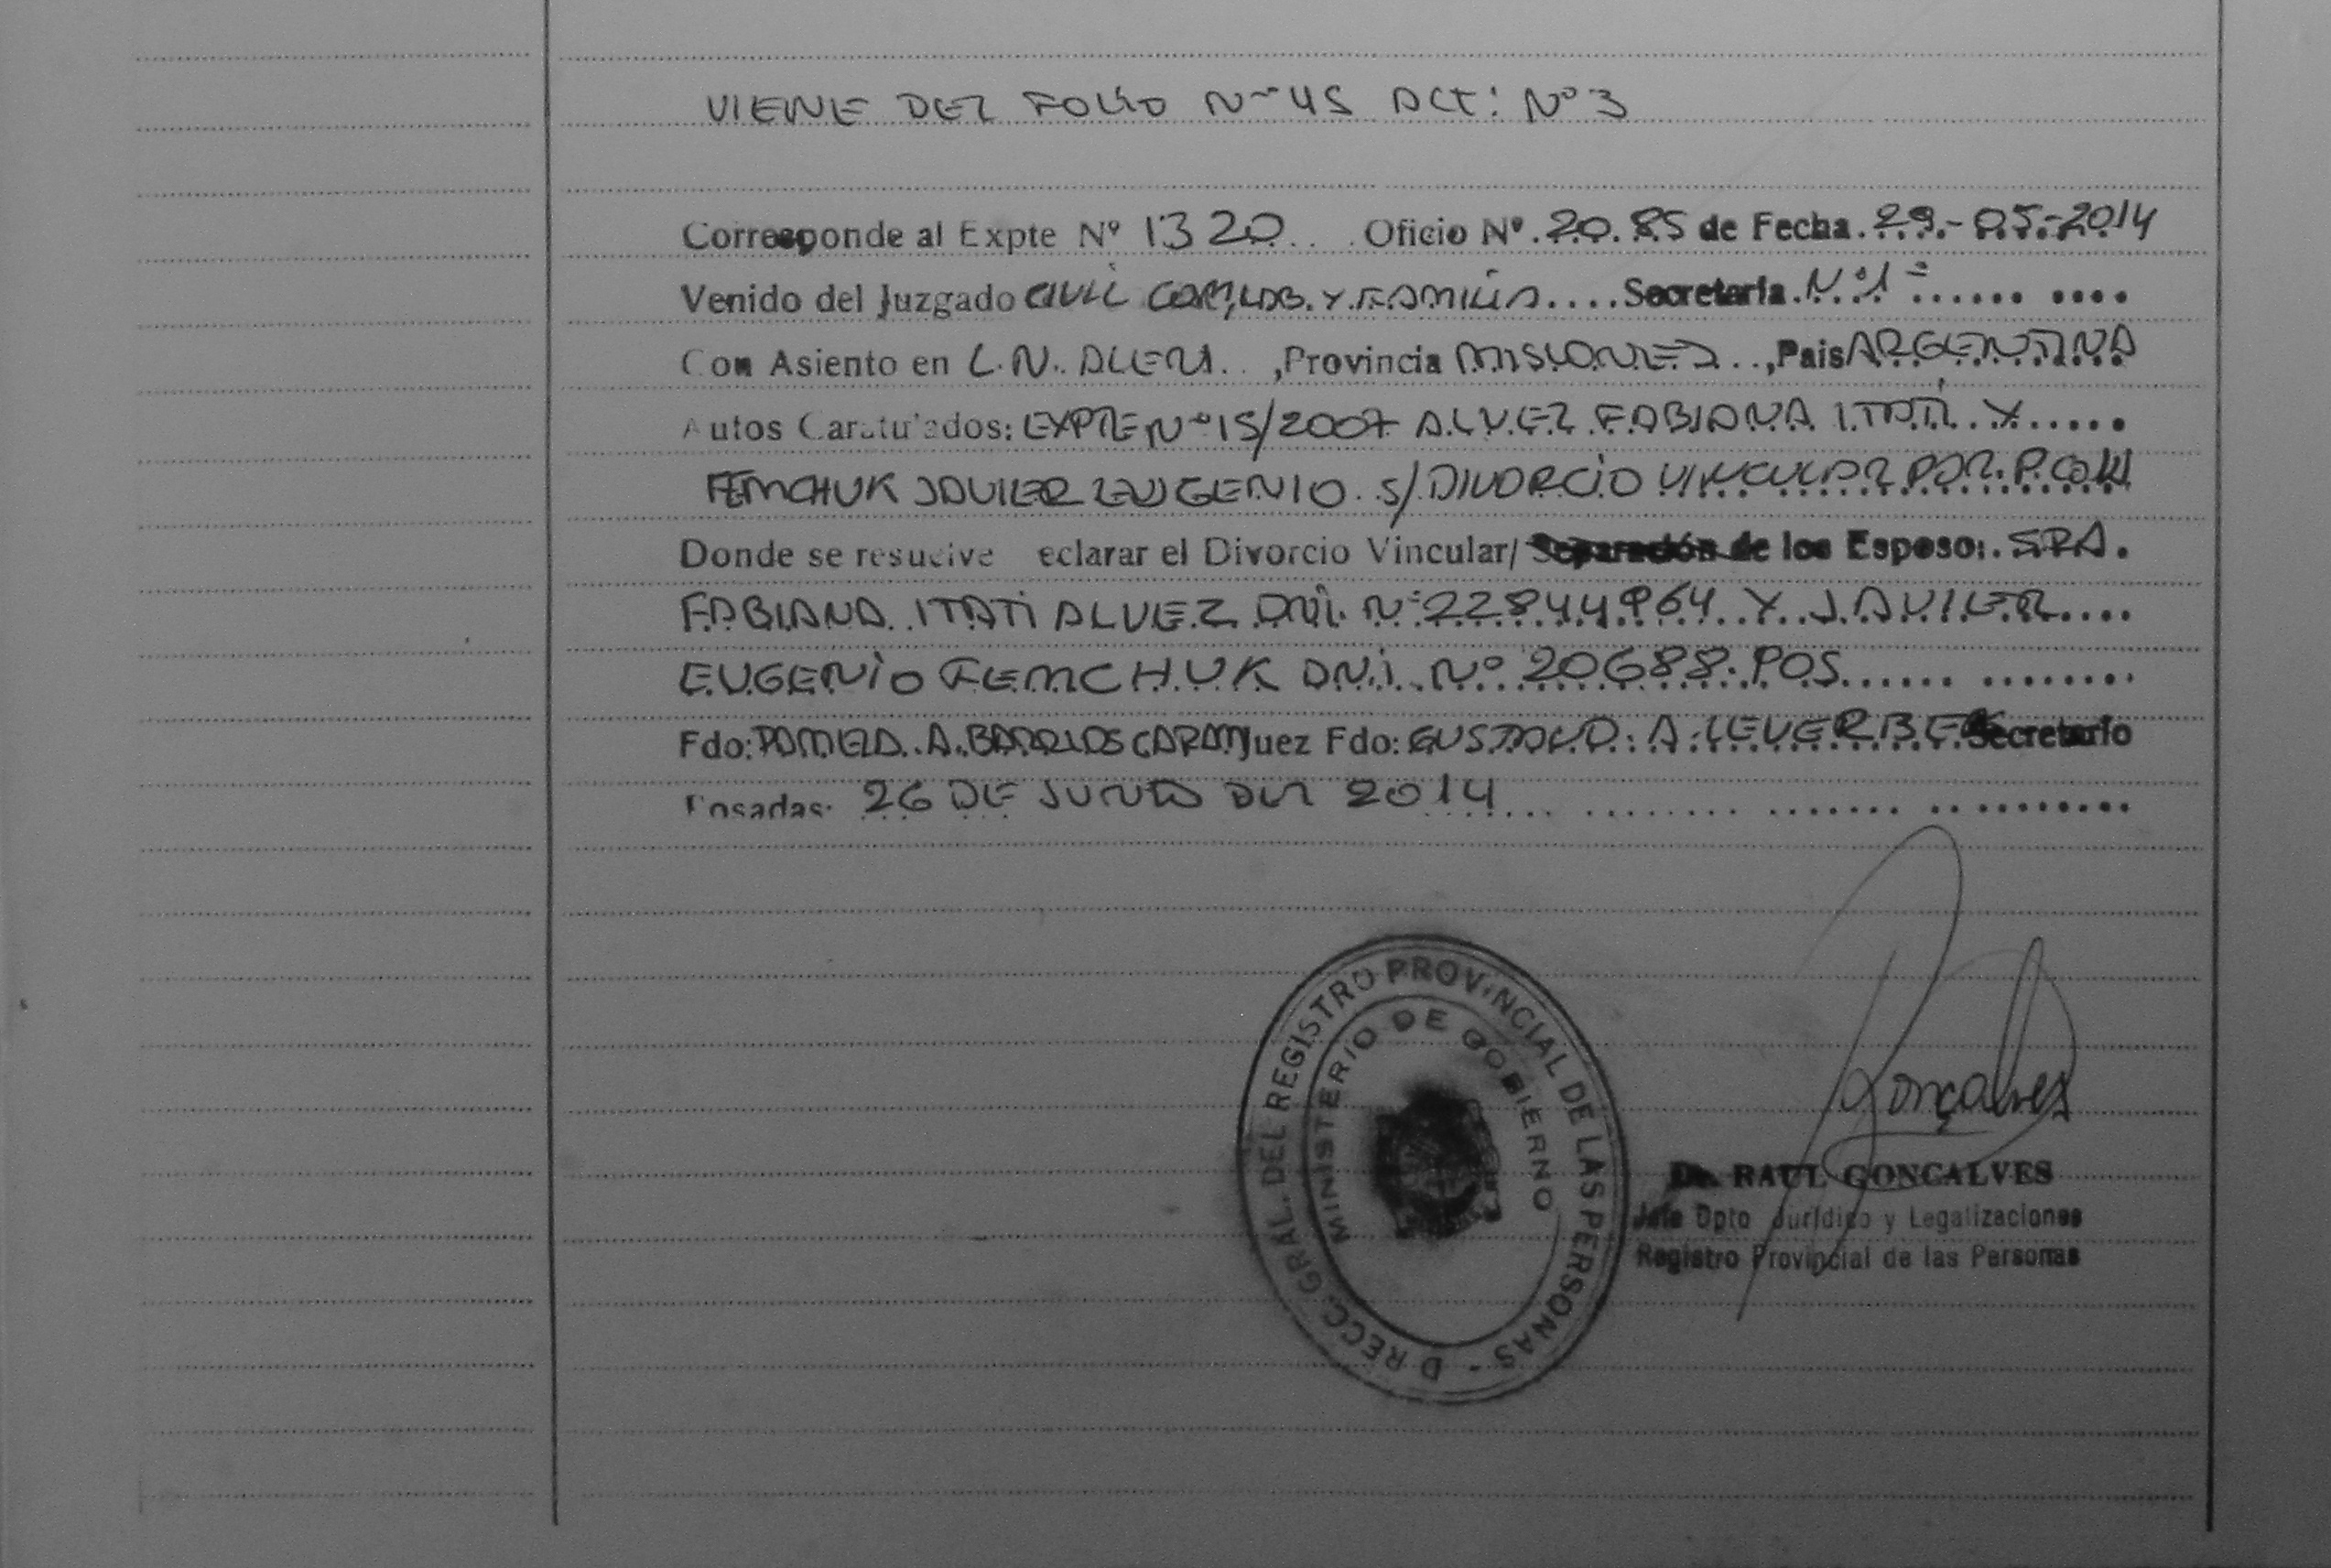 VIENE DEL FOLIO Nº 45 ACT: Nº 3
Corresponde al Expte Nº 1320 Oficio Nº 20.85 de Fecha 29-05-2014
Venido del Juzgado CIVIL COM, LAB. Y FAMILIA.... Secretaria Nº 1=
Con Asiento en L.N. ALEM. ,Provincia MISIONES ..,Pais ARGENTINA
Autos Caratulados: EXPTE Nº 15/2007 ALVEZ FABIANA ITATI X.....
FEMCHUK JAVIER EUGENIO S/ DIVORCIO VINCULAR POR P.
Donde se resuelve eclarar el Divorcio Vincular/ Separación de los Esposo: SRA.
FABIANA ITATI ALVEZ DNI. Nº 22844964 Y JAVIER....
EUGENIO FEMCHUK DNI. Nº 20688
Fdo: PAMELA A. BARRIOS CARAM Juez Fdo: GUSTAVO A. Secretario
Posadas: 26 DE JUNIO DEL 2014
DIRECC. GRAL. DEL REGISTRO PROVINCIAL DE LAS PERSONAS -
MINISTERIO DE GOBIERNO
Gonçalves
Dr. RAUL GONCALVES
Jefe Dpto Jurídico y Legalizaciones
Registro Provincial de las Personas